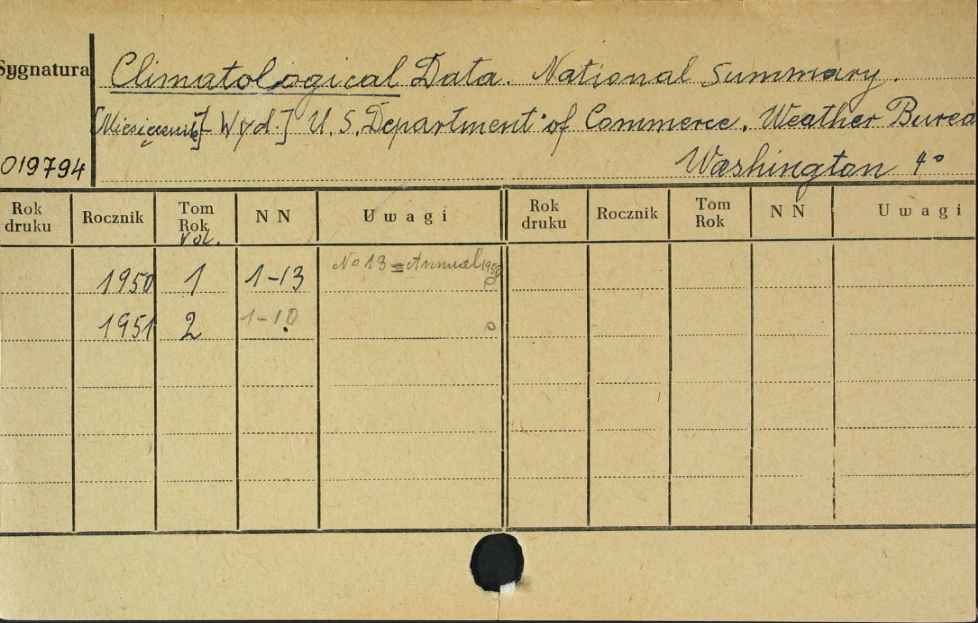 Sygnatura
Climatological Data. National Summary.
[Miesięcznik] Wyd.] U.S. Department of Commerce. Weather Burea
019794
Washington 4°
Rok druku Rocznik Tom Rok Vol. NN Uwagi Rok druku Rocznik Tom Rok NN Uwagi
1950 1 1-13 No 13 = Annual 1950 o
1951 2 1-10 o